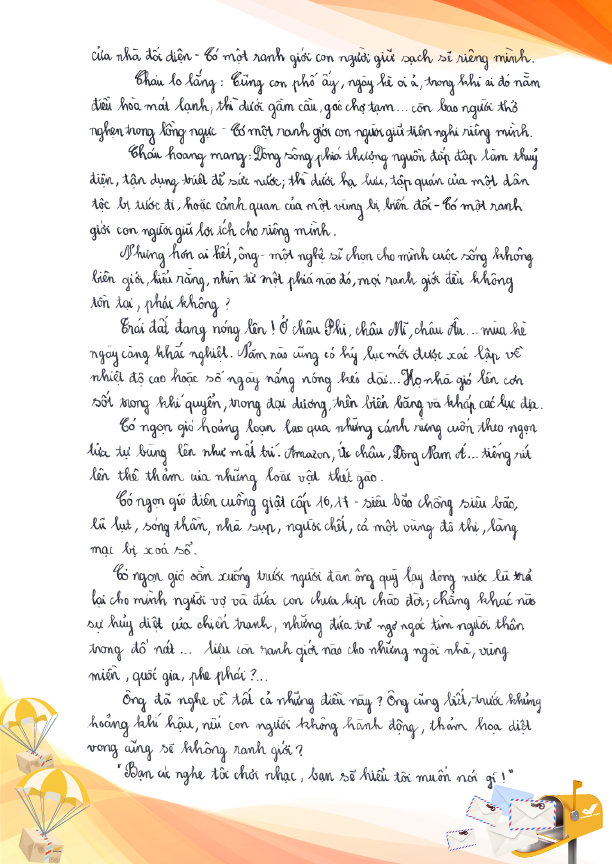 cửa nhà đối diện - Có một ranh giới con người giữ sạch sẽ riêng mình.
Cháu lo lắng: Cũng con phố ấy, ngày hè oi ả, trong khi ai đó nằm
điều hòa mát lạnh, thì dưới gầm cầu, góc chợ tạm... còn bao người thở
nghẹn trong lồng ngực - Có một ranh giới con người giữ tiện nghi riêng mình.
Cháu hoang mang: Dòng sông phía thượng nguồn đắp đập làm thuỷ
điện, tận dụng triệt để sức nước; thì dưới hạ lưu, tập quán của một dân
tộc bị tước đi, hoặc cảnh quan của một vùng bị biến đổi - Có một ranh
giới con người giữ lợi ích cho riêng mình.
Nhưng hơn ai hết, ông - một nghệ sĩ chọn cho mình cuộc sống không
biên giới, hiểu rằng, nhìn từ một phía nào đó, mọi ranh giới đều không
tồn tại, phải không?
Trái đất đang nóng lên! Ở châu Phi, châu Mĩ, châu Âu... mùa hè
ngày càng khắc nghiệt. Năm nào cũng có kỷ lục mới được xác lập về
nhiệt độ cao hoặc số ngày nắng nóng kéo dài... Họ nhà gió lên cơn
sốt trong khí quyển, trong đại dương, trên biển băng và khắp các lục địa.
Có ngọn gió hoảng loạn lao qua những cánh rừng cuốn theo ngọn
lửa tự bùng lên như mất trí. Amazon, Úc châu, Đông Nam Á... tiếng rít
lên thê thảm của những loài vật thét gào.
Có ngọn gió điên cuồng giật cấp 16, 17 - siêu bão chồng siêu bão,
lũ lụt, sóng thần, nhà sụp, người chết, cả một vùng đô thị, làng
mạc bị xoá sổ.
Có ngọn gió sần xuống trước người đàn ông quỳ lạy dòng nước lũ trả
lại cho mình người vợ và đứa con chưa kịp chào đời; chẳng khác nào
sự hủy diệt của chiến tranh, những đứa trẻ ngơ ngác tìm người thân
trong đổ nát... liệu còn ranh giới nào cho những ngôi nhà, vùng
miền, quốc gia, phe phái?...
Ông đã nghe về tất cả những điều này? Ông cũng biết, trước khủng
hoảng khí hậu, nếu con người không hành động, thảm hoạ diệt
vong cũng sẽ không ranh giới?
"Bạn cứ nghe tôi chơi nhạc, bạn sẽ hiểu tôi muốn nói gì!"